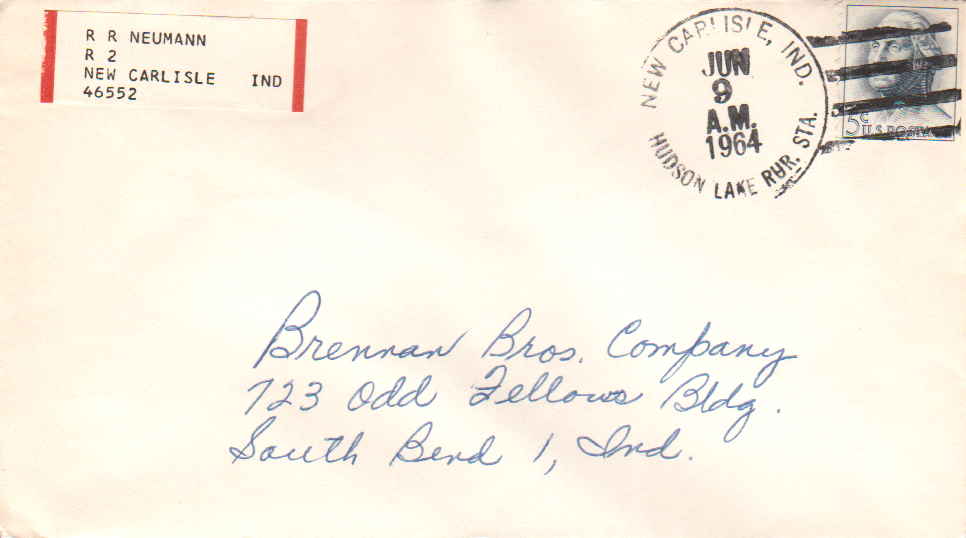 R R NEUMANN
R 2
NEW CARLISLE IND
46552
NEW CARLISLE, IND.
JUN
9
A.M.
1964
HUDSON LAKE RUR. STA.
5¢
U.S. POSTAGE
Brennan Bros. Company
723 Odd Fellows Bldg.
South Bend 1, Ind.